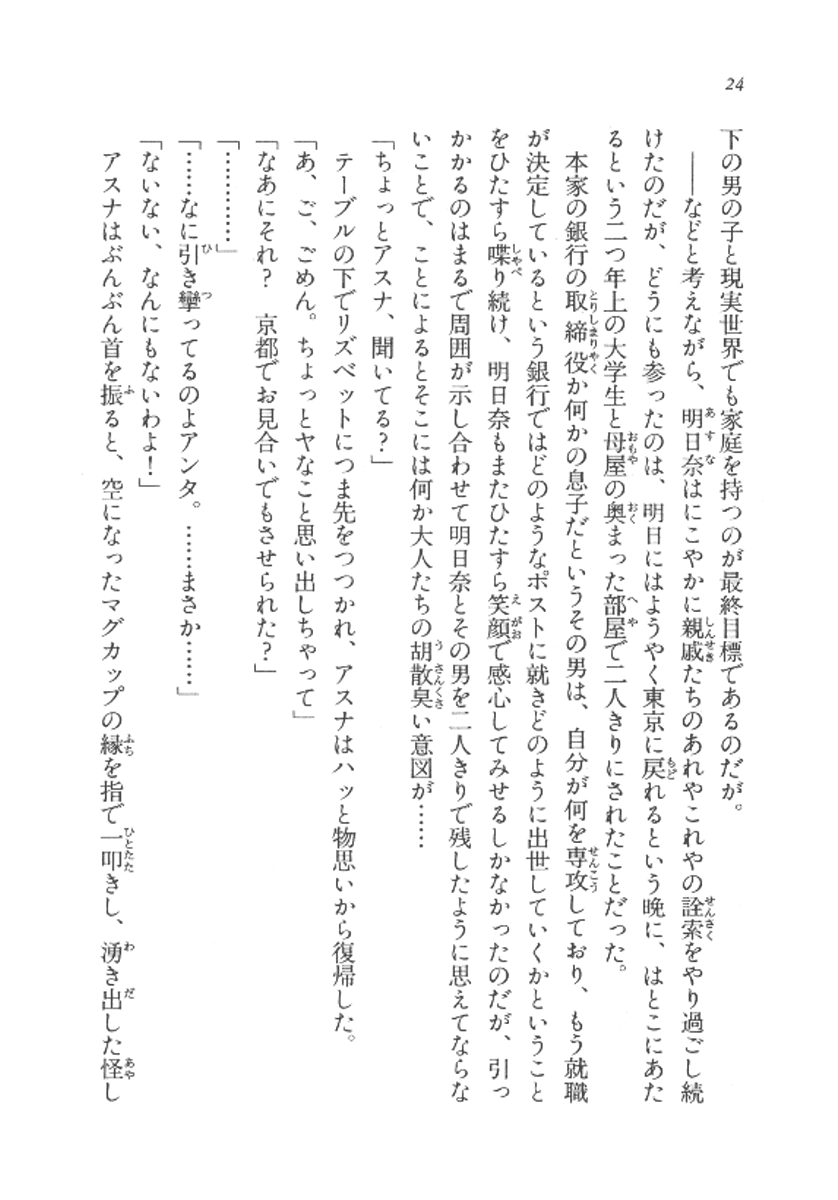 24
下の男の子と現実世界でも家庭を持つのが最終目標であるのだが。
――などと考えながら、明日奈はにこやかに親戚たちのあれやこれやの詮索をやり過ごし続
けたのだが、どうにも参ったのは、明日にはようやく東京に戻れるという晩に、はとこにあた
るという二つ年上の大学生と母屋の奥まった部屋で二人きりにされたことだった。
本家の銀行の取締役か何かの息子だというその男は、自分が何を専攻しており、もう就職
が決定しているという銀行ではどのようなポストに就きどのように出世していくかということ
をひたすら喋り続け、明日奈もまたひたすら笑顔で感心してみせるしかなかったのだが、引っ
かかるのはまるで周囲が示し合わせて明日奈とその男を二人きりで残したように思えてならな
いことで、ことによるとそこには何か大人たちの胡散臭い意図が……
「ちょっとアスナ、聞いてる？」
テーブルの下でリズベットにつま先をつつかれ、アスナはハッと物思いから復帰した。
「あ、ご、ごめん。ちょっとヤなこと思い出しちゃって」
「なあにそれ？　京都でお見合いでもさせられた？」
「…………」
「……なに引き攣ってるのよアンタ。……まさか……」
「ないない、なんにもないわよ！」
アスナはぶんぶん首を振ると、空になったマグカップの縁を指で一叩きし、湧き出した怪し